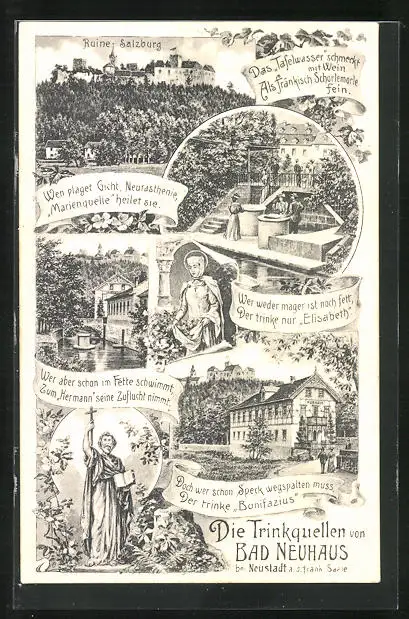 Ruine Salzburg
Das „Tafelwasser" schmeckt
mit Wein
Als fränkisch Schorlemorle
fein.
Wen plaget Gicht, Neurasthenie,
„Marienquelle" heilet sie.
Wer weder mager ist noch fett,
Der trinke nur „Elisabeth"
Wer aber schon im Fette schwimmt,
Zum „Hermann" seine Zuflucht nimmt.
Doch wer schon Speck wegspalten muss,
Der trinke „Bonifazius"
Die Trinkquellen von
BAD NEUHAUS
bei Neustadt a. d. fränk. Saale